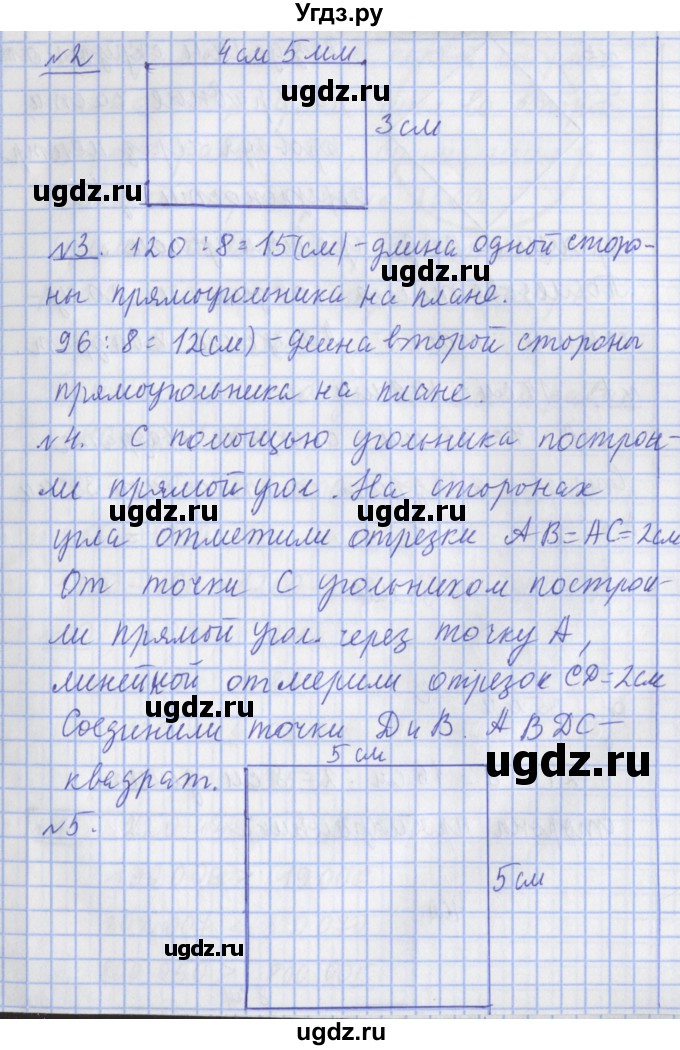 Угдз.ру
№2
4см 5мм
ugdz.ru
3см
ugdz.ru
№3. 120:8=15(см)-длина одной сторо-
ugdz.ru
ны прямоугольника на плане.
96:8=12(см)-длина второй стороны
прямоугольника на плане.
№4. С помощью угольника построи-
ли прямой угол. На сторонах
ugdz.ru ugdz.ru
угла отметили отрезки АВ=АС=2см
От точки С угольником построи-
ли прямой угол. через точку А,
линейкой отмерили отрезок СD=2см
ugdz.ru
Соединили точки D и В. АВDС-
5 см
ugdz.ru
квадрат.
№5.
5см
ugdz.ru
ugdz.ru